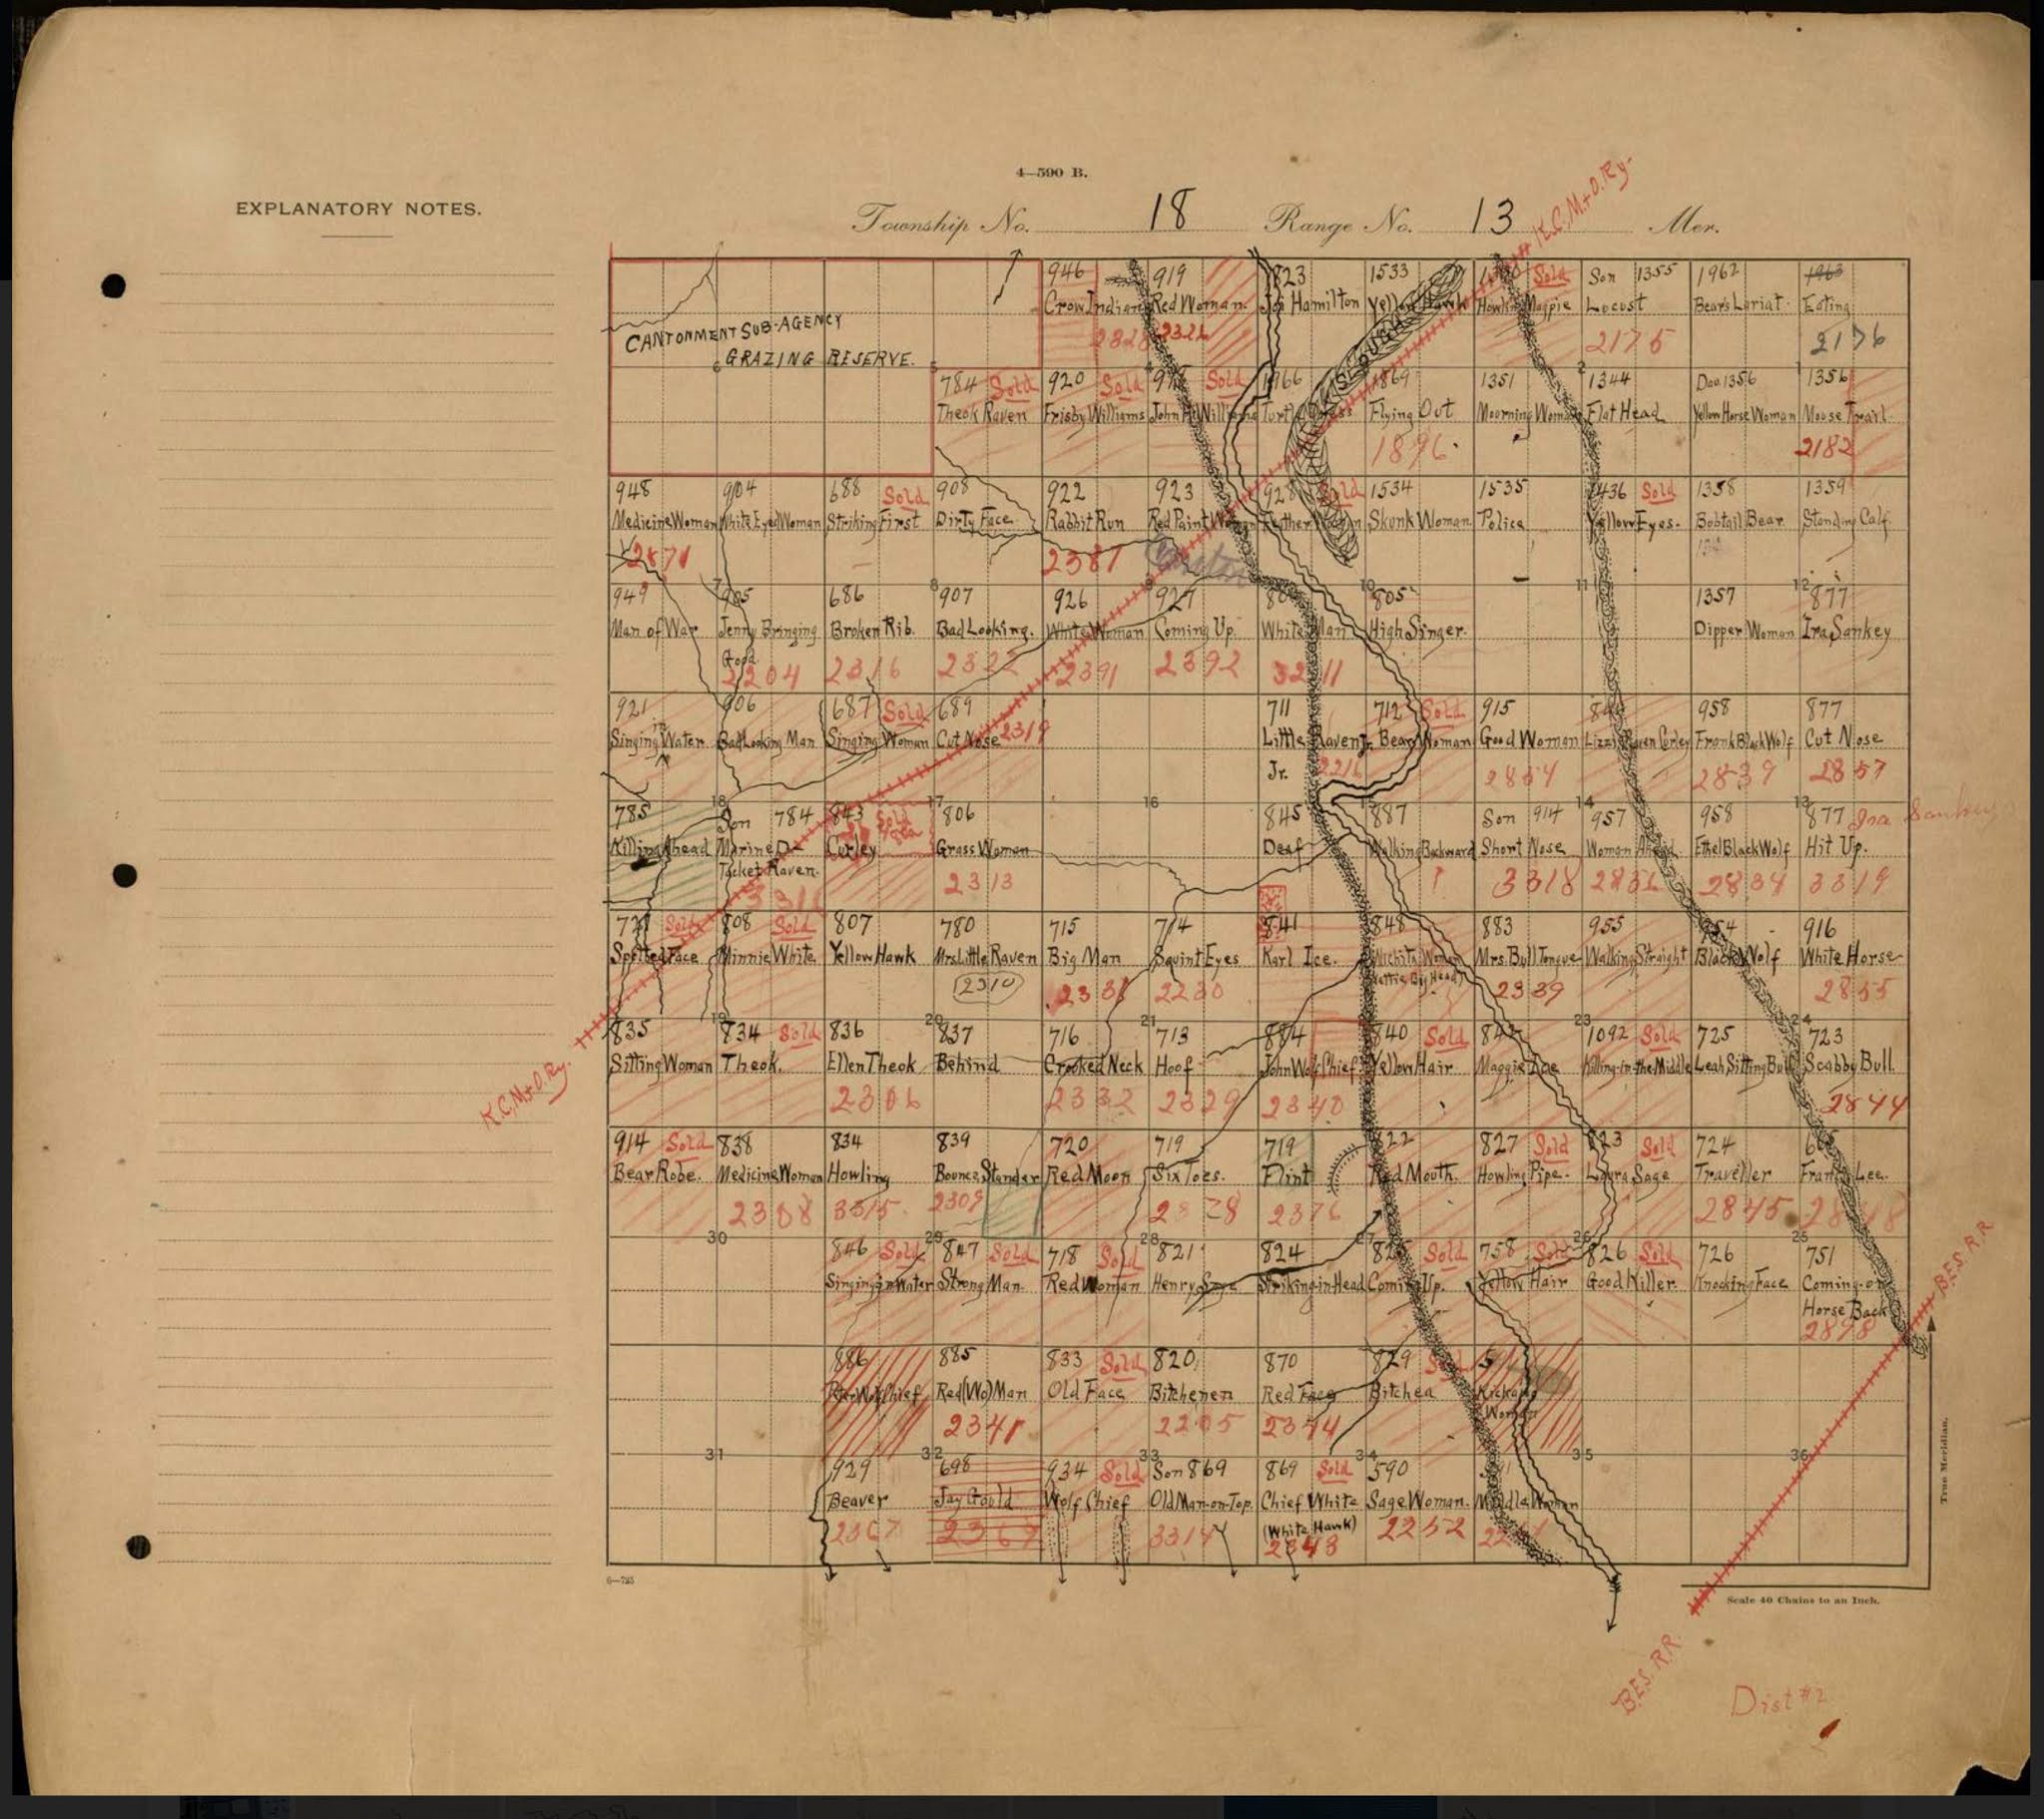 4—590 B.
EXPLANATORY NOTES.
Township No. 18 Range No. 13 Mer.
K.C.M.+O.Ry.
946 919 823 1533 Sold Son 1355 1962 1963
Crow Indian Red Woman Hamilton Yellow Hawk Howling Magpie Locust Bear's Lariat Eating
CANTONMENT SUB-AGENCY
GRAZING RESERVE.
2322 2175 2176
SLOUGH
6 5 2 1
784 Sold 920 Sold Sold 1966 1869 1351 1344 Dau. 1356 1356
Theok Raven Frisby Williams John Williams Flying Out Mourning Woman Flat Head Yellow Horse Woman Moose Trail
1896 2182
948 904 688 Sold 908 922 923 928 Sold 1534 1535 1436 Sold 1358 1359
Medicine Woman White Eyed Woman Striking First Dirty Face Rabbit Run Red Paint Woman Skunk Woman Police Yellow Eyes. Bobtail Bear Standing Calf
2871 2381
Canton
7 8 10 11 12
949 905 686 907 926 927 805 1357 877
Man of War Jenny Bringing Broken Rib. Bad Looking. White Woman Coming Up. White Man High Singer. Dipper Woman Ira Sankey
Good
2204 2316 2322 2391 2392 3211
921 906 687 Sold 689 711 712 Sold 915 958 877
Singing in Water Bad Looking Man Singing Woman Cut Nose 2319 Little Raven, Bear Woman Good Woman Lizzie Raven Curley Frank Black Wolf Cut Nose
Jr. 2216 2854 2839 2857
18 17 16 14 13
785 Son 784 843 Sold 806 845 887 Son 914 957 958 877 Ira Sankey
Killing Ahead Marine D— Curley Grass Woman Deaf Walking Backward Short Nose Woman Ahead Ethel Black Wolf Hit Up.
Tacket Raven.
2313 3318 2836 2834 3319
Sold 808 Sold 807 780 715 714 841 848 883 955 954 916
Spotted Face Minnie White Yellow Hawk Mrs. Little Raven Big Man Squint Eyes Karl Ice. Wichita Woman Mrs. Bull Tongue Walking Straight Black Wolf White Horse
2310 2331 2230 2339 2855
19 20 21 23 24
835 834 Sold 836 837 716 713 884 840 Sold 1092 Sold 725 723
Sitting Woman Theok. Ellen Theok Behind Crooked Neck Hoof John Wolf Chief Yellow Hair Maggie Killing-in-the-Middle Leah Sitting Bull Scabby Bull
K.C.M.+O.Ry.
2306 2332 2329 2340 2844
914 Sold 838 834 839 720 719 719 822 827 Sold 823 Sold 724
Bear Robe. Medicine Woman Howling Bounce Stander Red Moon Six Toes. Flint Red Mouth. Howling Pipe. Laura Sage Traveller Frank Lee.
2308 3315 2309 2828 2376 2845 2848
30 29 28 27 26 25
846 Sold 847 Sold 718 Sold 821 824 Sold 758 Sold 826 Sold 726 751
Singing in Water Strong Man. Red Woman Henry Sage Striking-in-Head Coming Up. Yellow Hair Good Killer. Knocking Face Coming-on
Horse Back
2898
B.E.S. R.R.
886 885 833 Sold 820 870 829
Wolf Chief Red (Wo) Man Old Face Bitchenen Red Face Bitchea Kicking
Woman
2341 2205 2344
31 32 33 34 35 36
929 698 934 Sold Son 869 869 Sold 590
Beaver Jay Gould Wolf Chief Old Man-on-Top. Chief White Sage Woman. Middle Woman
(White Hawk)
2367 2369 3314 2343 2252
True Meridian.
6—725
Scale 40 Chains to an Inch.
B.E.S. R.R.
Dist #2